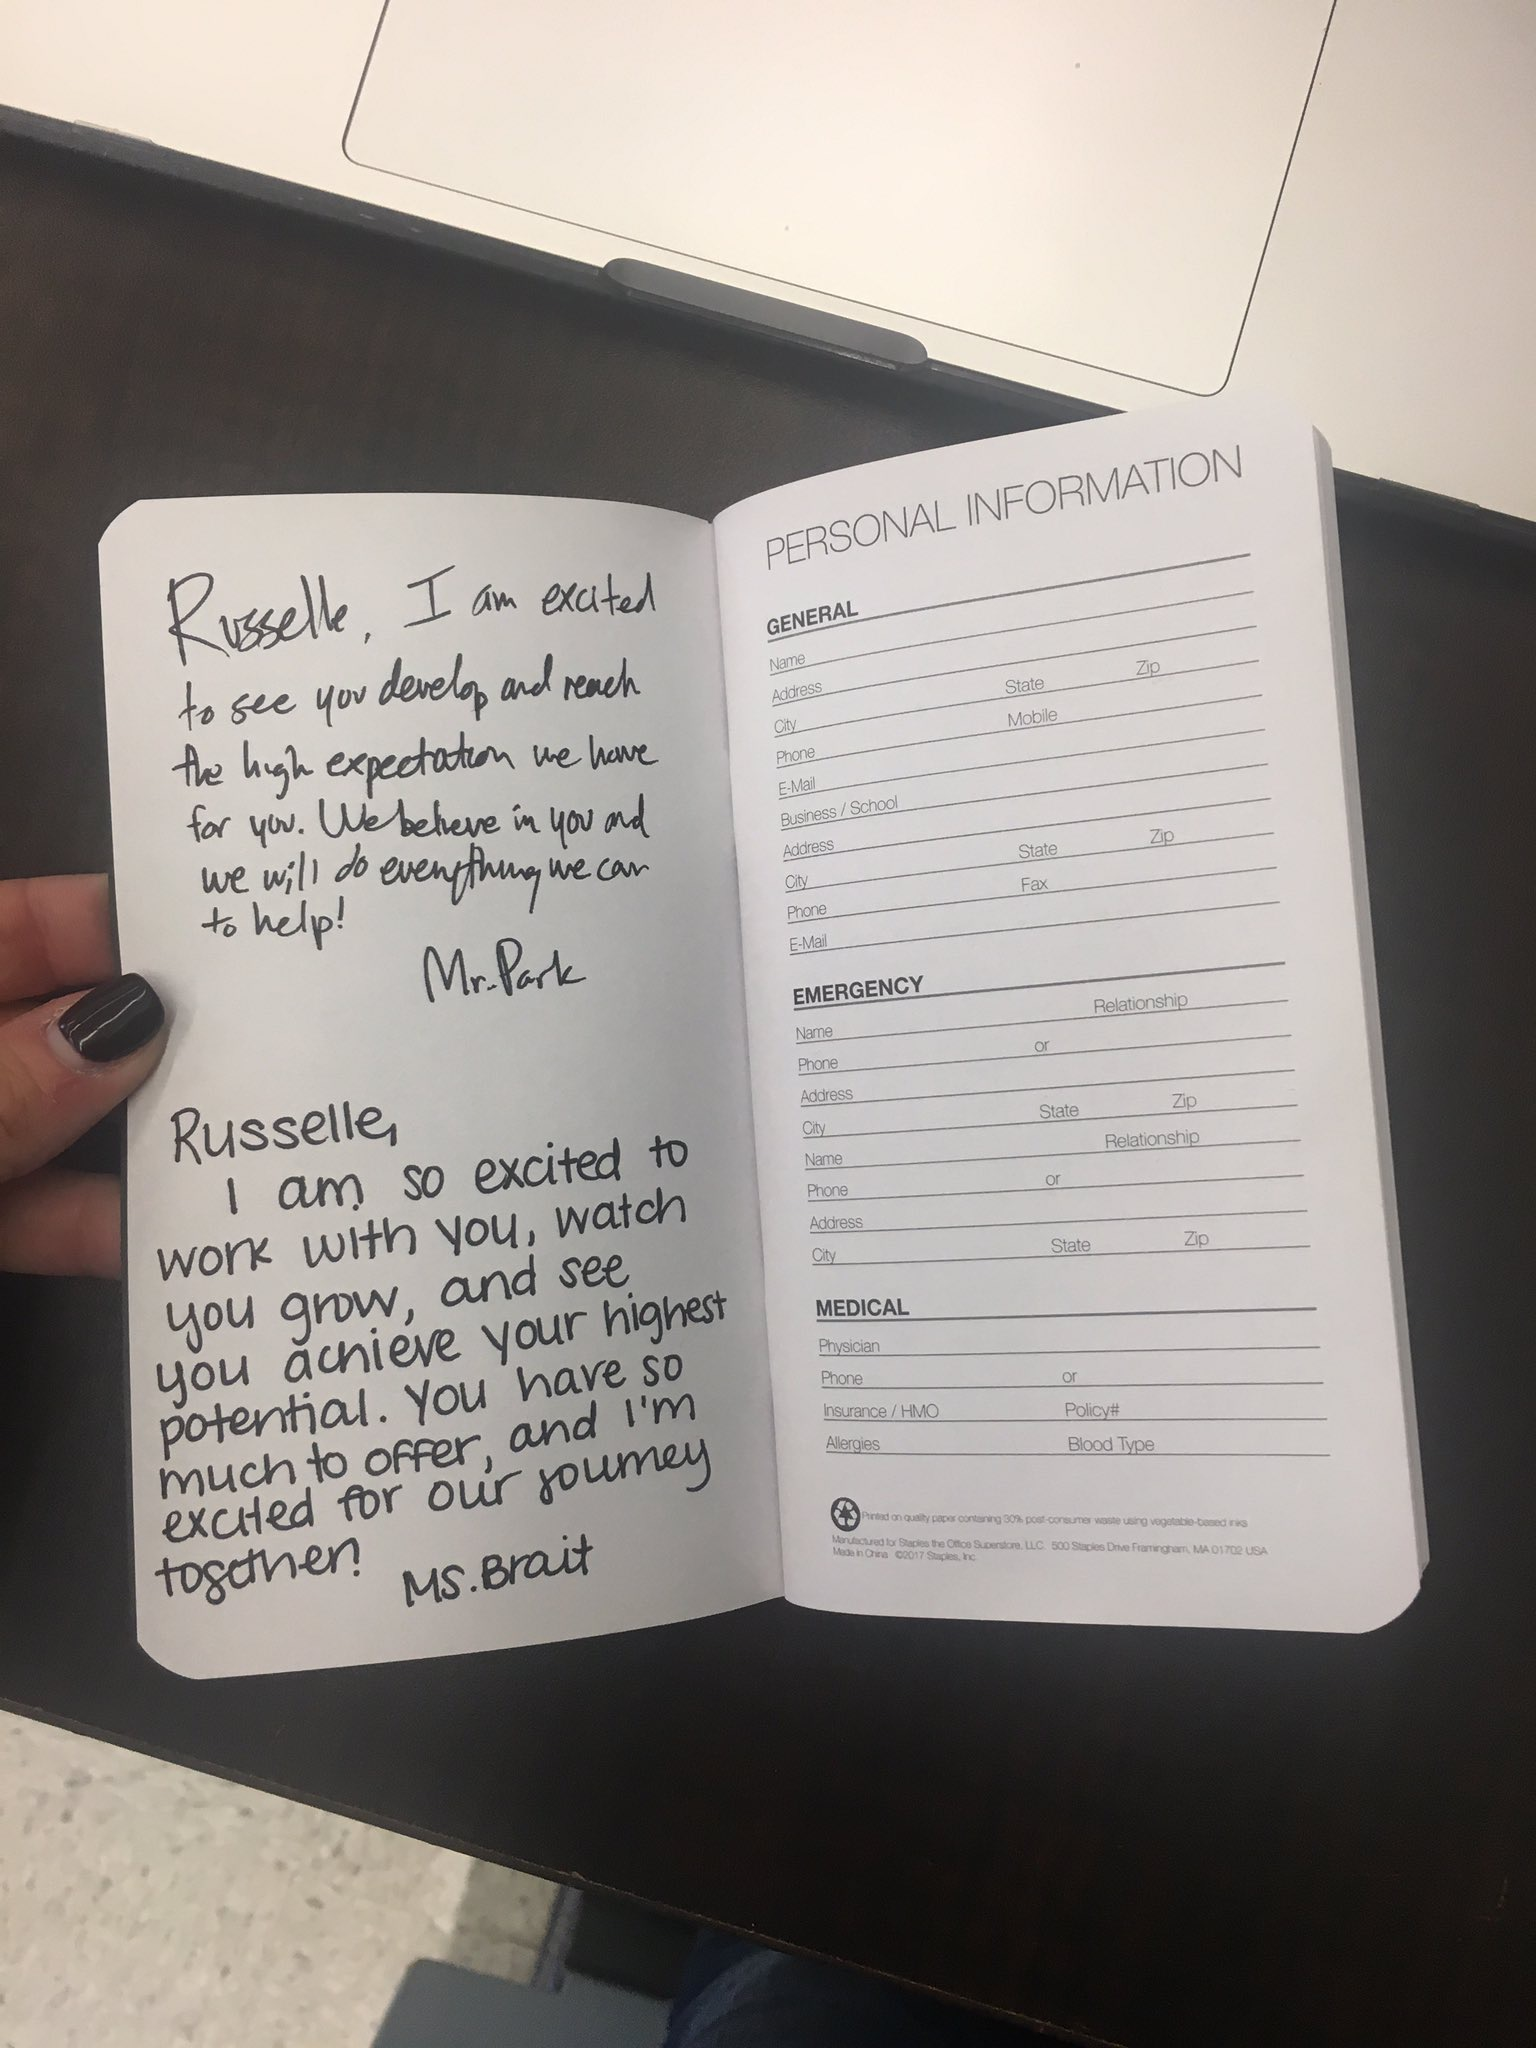 Russelle, I am excited
to see you develop and reach
the high expectation we have
for you. We believe in you and
we will do everything we can
to help!
Mr. Park
Russelle,
I am so excited to
work with you, watch
you grow, and see
you achieve your highest
potential. You have so
much to offer, and I'm
excited for our journey
together!
MS. Brait
PERSONAL INFORMATION
GENERAL
Name
Address
City State Zip
Phone Mobile
E-Mail
Business / School
Address
City State Zip
Phone Fax
E-Mail
EMERGENCY
Name Relationship
Phone or
Address
City State Zip
Name Relationship
Phone or
Address
City State Zip
MEDICAL
Physician
Phone or
Insurance / HMO Policy#
Allergies Blood Type
Printed on quality paper containing 30% post-consumer waste using vegetable-based inks
Manufactured for Staples the Office Superstore, LLC. 500 Staples Drive Framingham, MA 01702 USA
Made in China ©2017 Staples, Inc.